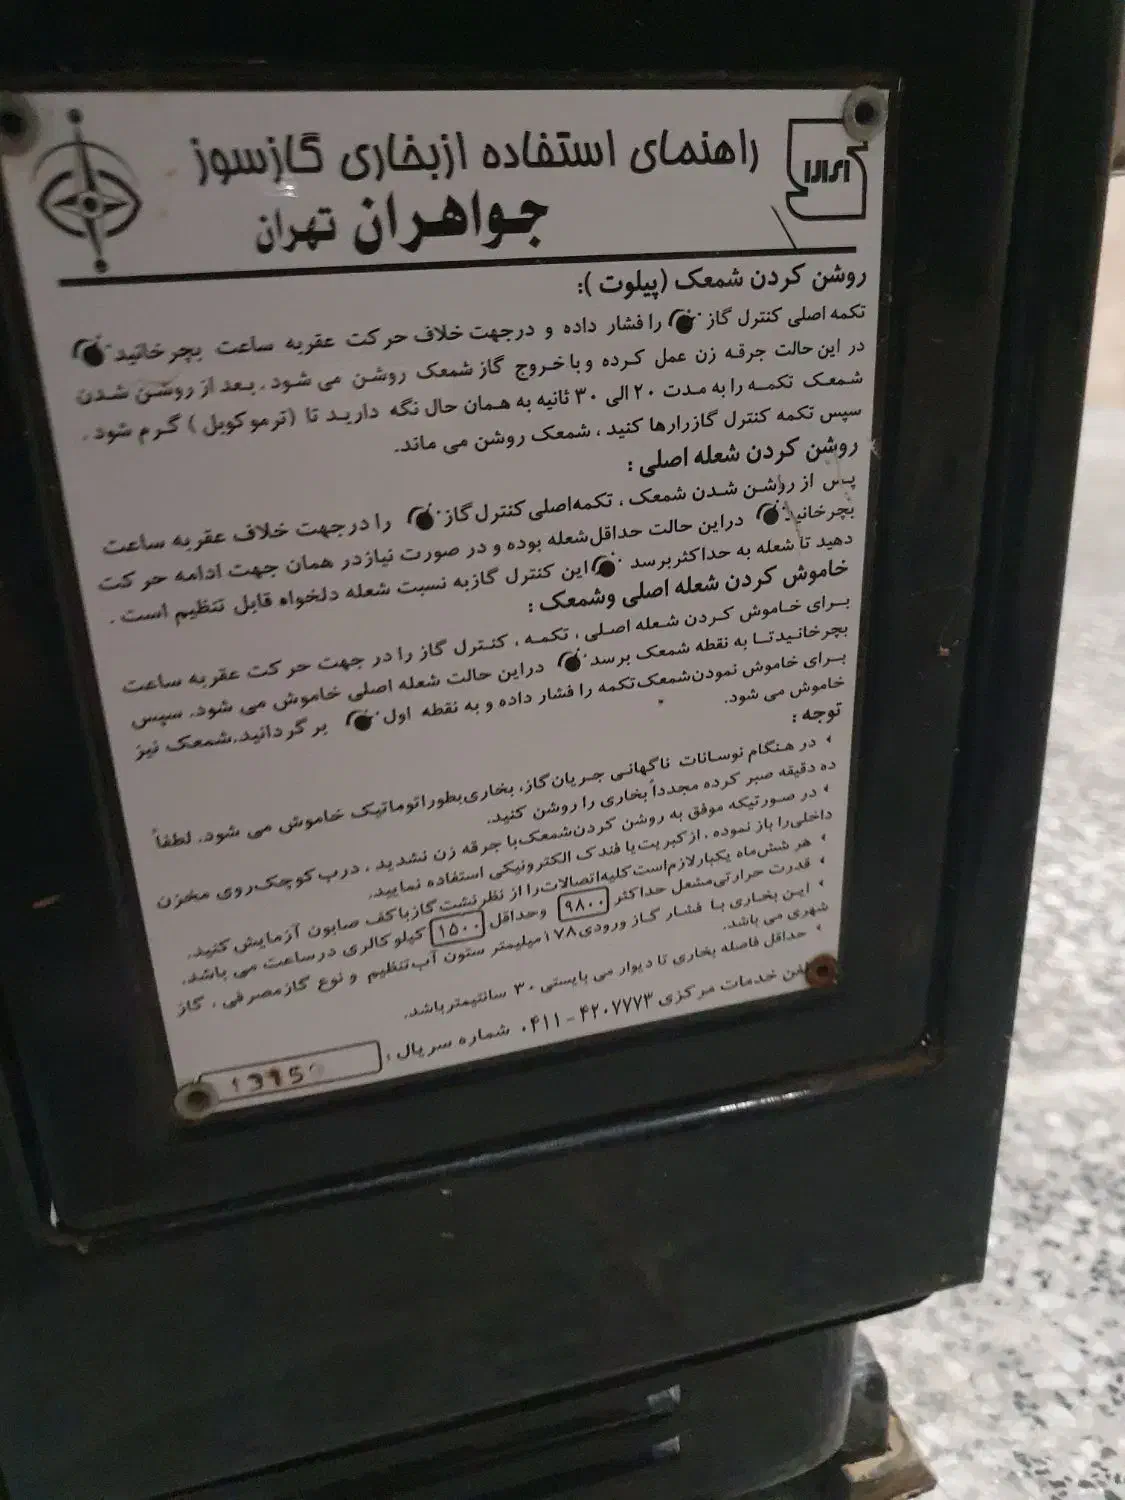 راهنمای استفاده از بخاری گازسوز
جواهران تهران
روشن کردن شمعک (پیلوت ):
تکمه اصلی کنترل گاز را فشار داده و درجهت خلاف حرکت عقربه ساعت بچرخانید
در این حالت جرقه زن عمل کرده و با خروج گاز شمعک روشن می شود. بعد از روشن شدن
شمعک تکمه را به مدت ۲۰ الی ۳۰ ثانیه به همان حال نگه دارید تا (ترموکوبل ) گرم شود .
سپس تکمه کنترل گازرارها کنید ، شمعک روشن می ماند.
روشن کردن شعله اصلی :
پس از روشن شدن شمعک ، تکمه‌اصلی کنترل گاز را درجهت خلاف عقربه ساعت
بچرخانید دراین حالت حداقل‌شعله بوده و در صورت نیاز‌در همان جهت ادامه حرکت
دهید تا شعله به حداکثر‌برسد این کنترل گاز‌به نسبت شعله دلخواه قابل تنظیم است .
خاموش کردن شعله اصلی وشمعک :
برای خاموش کردن شعله اصلی ، تکمه ، کنترل گاز را در جهت حرکت عقربه ساعت
بچرخانیدتا به نقطه شمعک برسد دراین حالت شعله اصلی خاموش می شود. سپس
برای خاموش نمودن‌شمعک‌تکمه را فشار داده و به نقطه اول بر گردانید.شمعک نیز
خاموش می شود.
توجه :
در هنگام نوسانات ناگهانی جریان‌گاز، بخاری‌بطوراتوماتیک خاموش می شود. لطفاً
ده دقیقه صبر کرده مجدداً بخاری را روشن کنید.
در صورتیکه موفق به روشن کردن‌شمعک‌با جرقه زن نشدید ، درب کوچک‌روی مخزن
داخلی‌را باز نموده ، از‌کبریت‌یا فندک الکترونیکی استفاده نمایید.
هر شش‌ماه یکبار‌لازم‌است‌کلیه‌اتصالات‌را از نظر‌نشت گاز‌با‌کف صابون آزمایش کنید.
قدرت حرارتی‌مشعل حداکثر ۹۸۰۰ وحداقل ۱۵۰۰ کیلو کالری در‌ساعت می باشد.
این بخاری با فشار گاز ورودی ۱۷۸ میلیمتر ستون آب‌تنظیم و نوع گاز‌مصرفی ، گاز
شهری می باشد.
حداقل فاصله بخاری تا دیوار می بایستی ۳۰ سانتیمتر‌باشد.
خدمات مرکزی ۴۲۰۷۷۷۳ - ۰۴۱۱ شماره سریال :